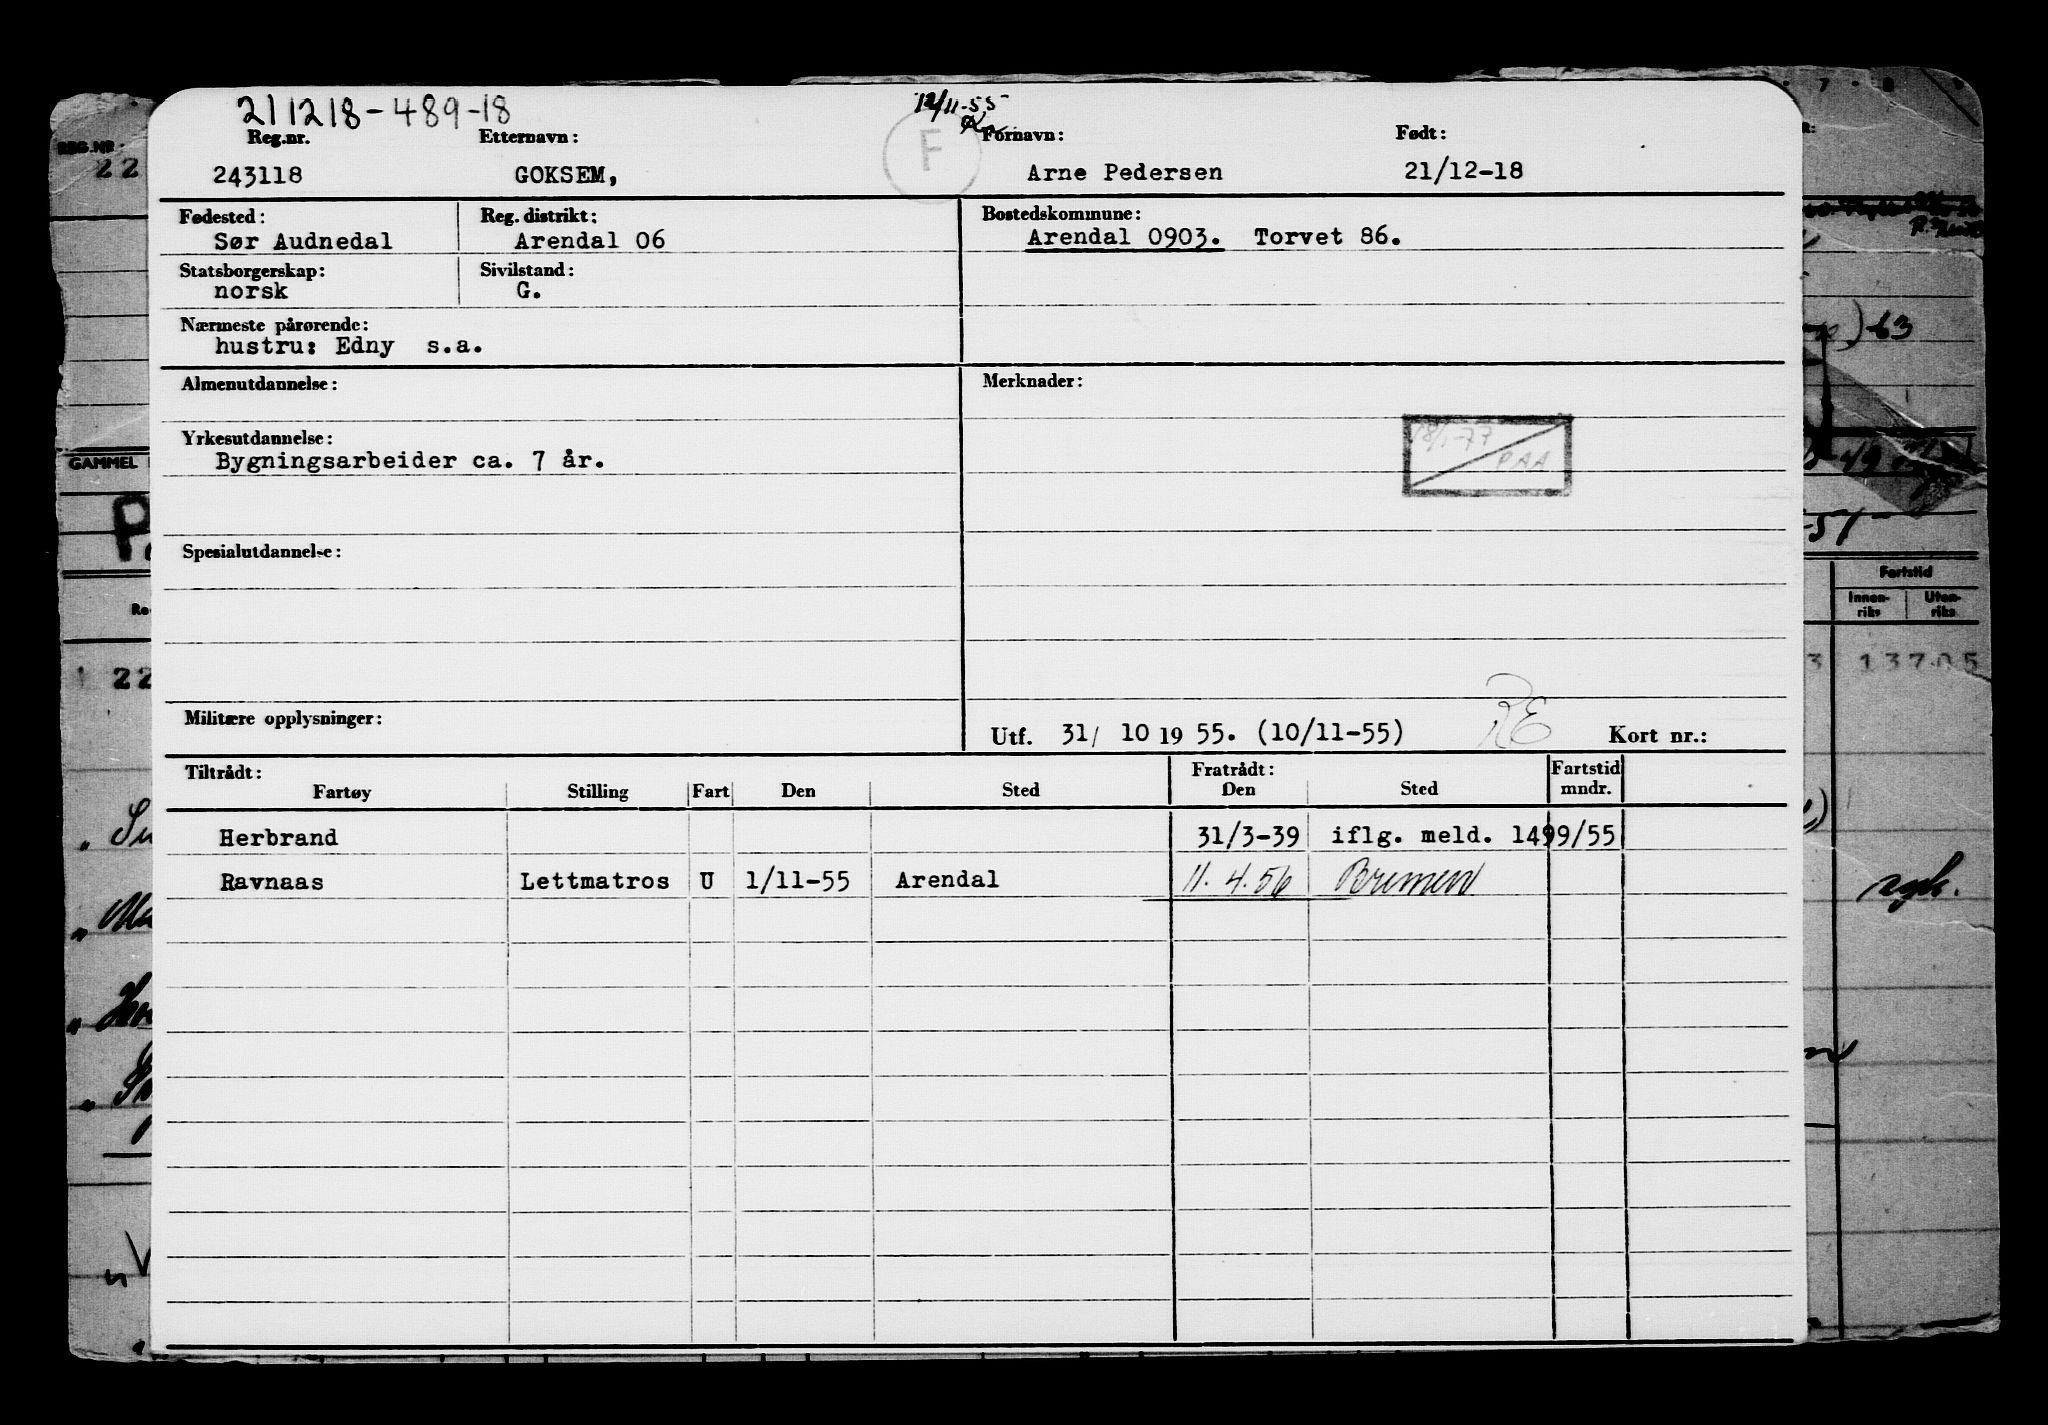 211218-489-18
12/11-55
Reg.nr. Etternavn: F Fornavn: Født:
243118 GOKSEM, Arne Pedersen 21/12-18
Fødested: Reg. distrikt: Bostedskommune:
Sør Audnedal Arendal 06 Arendal 0903. Torvet 86.
Statsborgerskap: Sivilstand:
norsk G.
Nærmeste pårørende:
hustru: Edny s.a.
Almenutdannelse: Merknader:
18/1-77
PAA
Yrkesutdannelse:
Bygningsarbeider ca. 7 år.
Spesialutdannelse:
Militære opplysninger:
Utf. 31/ 10 19 55. (10/11-55) RE Kort nr.:
Tiltrådt: Fratrådt: Fartstid
Fartøy Stilling Fart Den Sted Den Sted mndr.
Herbrand 31/3-39 iflg. meld. 1499/55
Ravnaas Lettmatros U 1/11-55 Arendal 11.4.56 Bremen
REG.NR.:
22
GAMMEL
22
63
49
-57
Fartstid
Innen-riks Uten-riks
3 13705